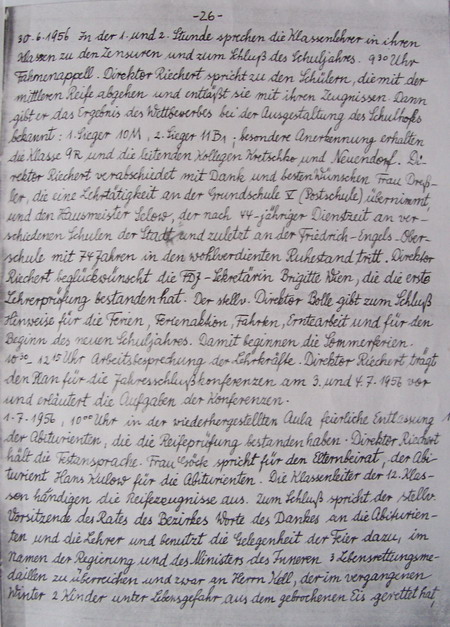 -26-
30.6.1956 In der 1. und 2. Stunde sprechen die Klassenlehrer in ihren
Klassen zu den Zensuren und zum Schluß des Schuljahres. 9³⁰ Uhr
Fahnenappell. Direktor Riechert spricht zu den Schülern, die mit der
mittleren Reife abgehen und entläßt sie mit ihren Zeugnissen. Dann
gibt er das Ergebnis des Wettbewerbes bei der Ausgestaltung des Schulhofes
bekannt: 1. Sieger 10M, 2. Sieger 11B1; besondere Anerkennung erhalten
die Klasse 9R und die leitenden Kollegen Kretschko und Neuendorf. Di-
rektor Riechert verabschiedet mit Dank und besten Wünschen Frau Dreß-
ler, die eine Lehrtätigkeit an der Grundschule V (Postschule) übernimmt,
und den Hausmeister Selow, der nach 44-jähriger Dienstzeit an ver-
schiedenen Schulen der Stadt und zuletzt an der Friedrich-Engels-Ober-
schule mit 74 Jahren in den wohlverdienten Ruhestand tritt. Direktor
Riechert beglückwünscht die FDJ-Sekretärin Brigitte Wien, die die erste
Lehrerprüfung bestanden hat. Der stellv. Direktor Bolle gibt zum Schluß
Hinweise für die Ferien, Ferienaktion, Fahrten, Erntearbeit und für den
Beginn des neuen Schuljahres. Damit beginnen die Sommerferien.
10³⁰-12¹⁵ Uhr Arbeitsbesprechung der Lehrkräfte. Direktor Riechert trägt
den Plan für die Jahresschlußkonferenzen am 3. und 4.7.1956 vor
und erläutert die Aufgaben der Konferenzen.
1.7.1956, 10⁰⁰ Uhr in der wiederhergestellten Aula feierliche Entlassung
der Abiturienten, die die Reifeprüfung bestanden haben. Direktor Riechert
hält die Festansprache. Frau Göde spricht für den Elternbeirat, der Abi-
turient Hans Kulow für die Abiturienten. Die Klassenleiter der 12. Klas-
sen händigen die Reifezeugnisse aus. Zum Schluß spricht der stellv.
Vorsitzende des Rates des Bezirkes Worte des Dankes an die Abiturien-
ten und die Lehrer und benutzt die Gelegenheit der Feier dazu, im
Namen der Regierung und des Ministers des Inneren 3 Lebensrettungsme-
daillen zu überreichen und zwar an Herrn Kell, der im vergangenen
Winter 2 Kinder unter Lebensgefahr aus dem gebrochenen Eis gerettet hat,